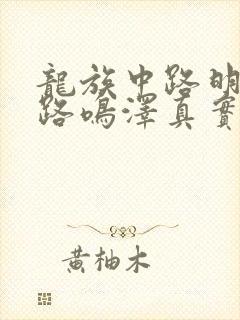 龍族中路明
路鳴澤真實
黄柚木